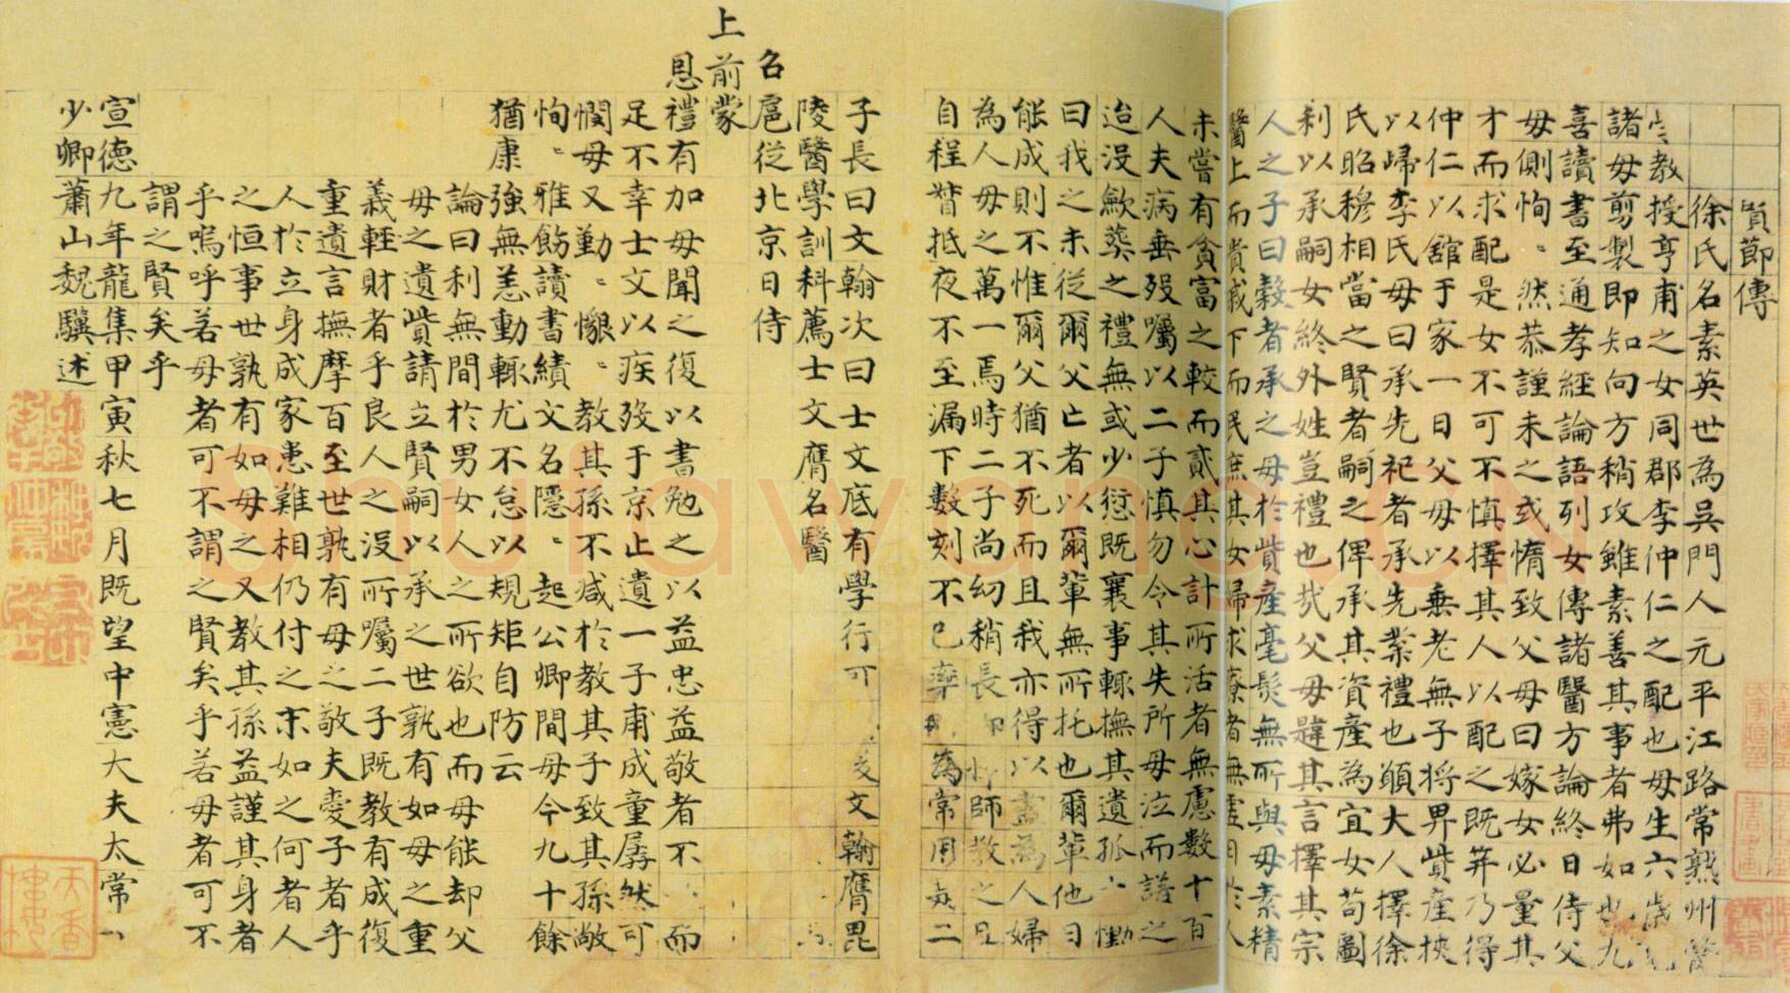 賢節傳
徐氏名素英世為吳門人元平江路常熟州醫
教授亨甫之女同郡李仲仁之配也母生六歲
諸母剪製即知向方稍攻雖素善其事者弗如也九
喜讀書至通孝經論語列女傳諸醫方論終日侍父
母側恂〻然恭謹未之或惰致父母曰嫁女必量其
才而求配是女不可不慎擇其人以配之既笄乃得
仲仁以舘于家一日父母以垂老無子將畀貲產挾
以歸李氏母曰承先祀者承先業禮也願大人擇徐
氏昭穆相當之賢者嗣之俾承其資產為宜女苟圖
利以承嗣女終外姓豈禮也㢤父母韙其言擇其宗
人之子曰穀者承之母於貲產毫髮無所與母素精
醫上而貴戚下而民庶其女婦求療者無虛日於人
未嘗有貧富之較而貳其心計所活者無慮數十百
人夫病垂歿囑以二子慎勿令其失所母泣而諾之
迨沒歛葬之禮無或少愆既襄事輒撫其遺孤 慟
曰我之未從爾父亡者以爾輩無所托也爾輩他日
能成則不惟爾父猶不死而且我亦得以盡為人婦
為人母之萬一焉時二子尚幼稍長 師教之
自程督抵夜不至漏下數刻不已 為常用 二
子長曰文翰次曰士文底有學行可 文翰膺毘
陵醫學訓科薦士文膺名醫
名扈從北京日侍
上前蒙
恩禮有加母聞之復以書勉之以益忠益敬者不 而
足不幸士文以疾歿于京止遺一子甫成童孱然可
憫母又勤〻懇〻教其孫不減於教其子致其孫敞
恂〻雅飭讀書績文名隱〻起公卿間母今九十餘
猶康強無恙動輒尤不怠以規矩自防云
論曰利無間於男女人之所欲也而母能却父
母之遺貲請立賢嗣以承之世孰有如母之重
義輕財者乎良人之沒所囑二子既教有成復
重遺言撫摩百至世孰有母之敬夫愛子者乎
人於立身成家患難相仍付之末如之何者人
之恒事世孰有如母之又教其孫益謹其身者
乎嗚呼若母者可不謂之賢矣乎若母者可不
謂之賢矣乎
宣德九年龍集甲寅秋七月既望中憲大夫太常
少卿蕭山魏驥述
天香樓
shufawang.cn